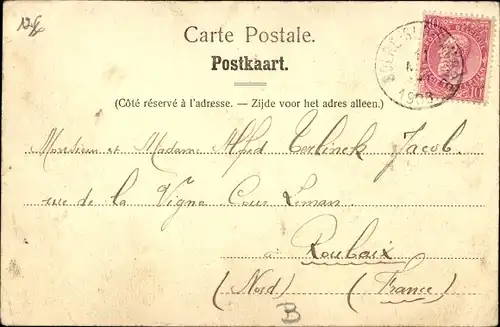 Carte Postale.
Postkaart.
(Côté réservé à l'adresse. – Zijde voor het adres alleen.)
10
Monsieur et Madame Alfred Terlinck Jacob.
rue de la Vigne Cour Leman.
à Roubaix
(Nord) (France)
B